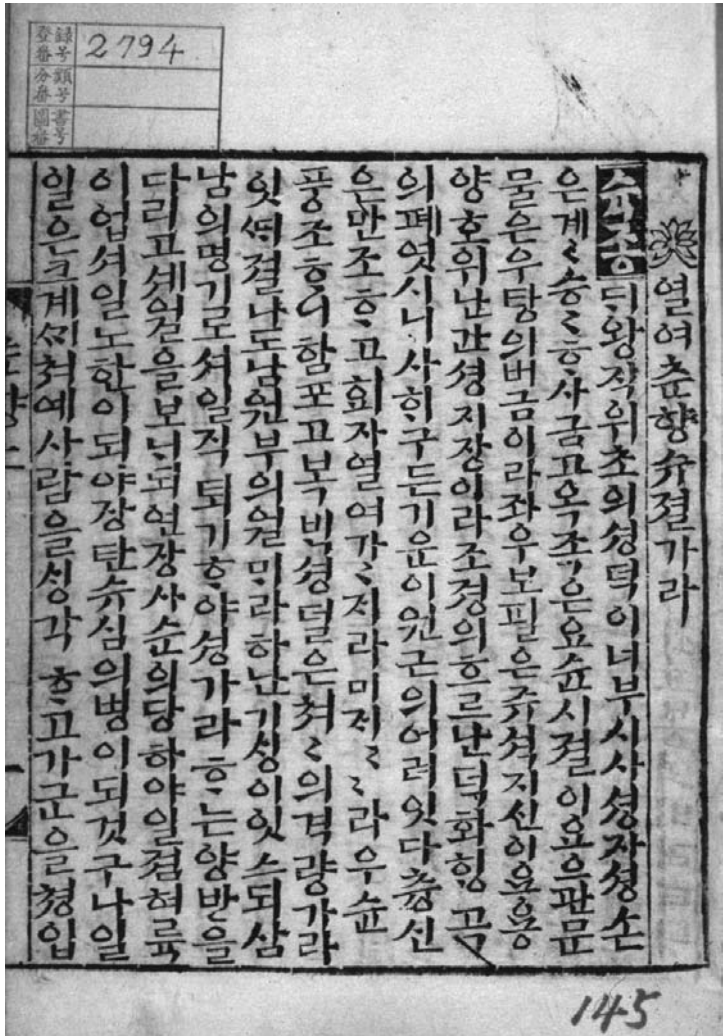 열여춘향슈졀가라
슉종ᄃᆡ왕직위초의셩덕이너부시사셩자셩손
은계〻승〻ᄒᆞ사금고옥족은요슌시졀이요으관문
물은우탕의버금이라좌우보필은쥬셕지신이요용
양호위난간셩지장이라조졍의흐르난덕화ᄒᆡᆼ곡
의폐엿시니사ᄒᆡ구든기운이원근의어려잇다츙신
은만조ᄒᆞ고회자열여가〻ᄌᆡ라미ᄌᆡ〻〻라우슌
풍조ᄒᆞ니함포고복ᄇᆡᆨ셩덜은쳐〻의격량가라
잇ᄯᆡ졀나도남원부의월ᄆᆡ라하난기ᄉᆡᆼ이잇스되삼
남의명기로셔일직퇴기ᄒᆞ야셩가라ᄒᆞ는양반을
다리고셰월을보ᄂᆡ되연장사순의당하야일졈혀륙
이업셔일노한이되야장탄슈심의병이되것구나일
일은크계ᄭᆡ쳐예사람을ᄉᆡᆼ각ᄒᆞ고가군을쳥입
登録番号 2794
分類番号
圖書番号
145